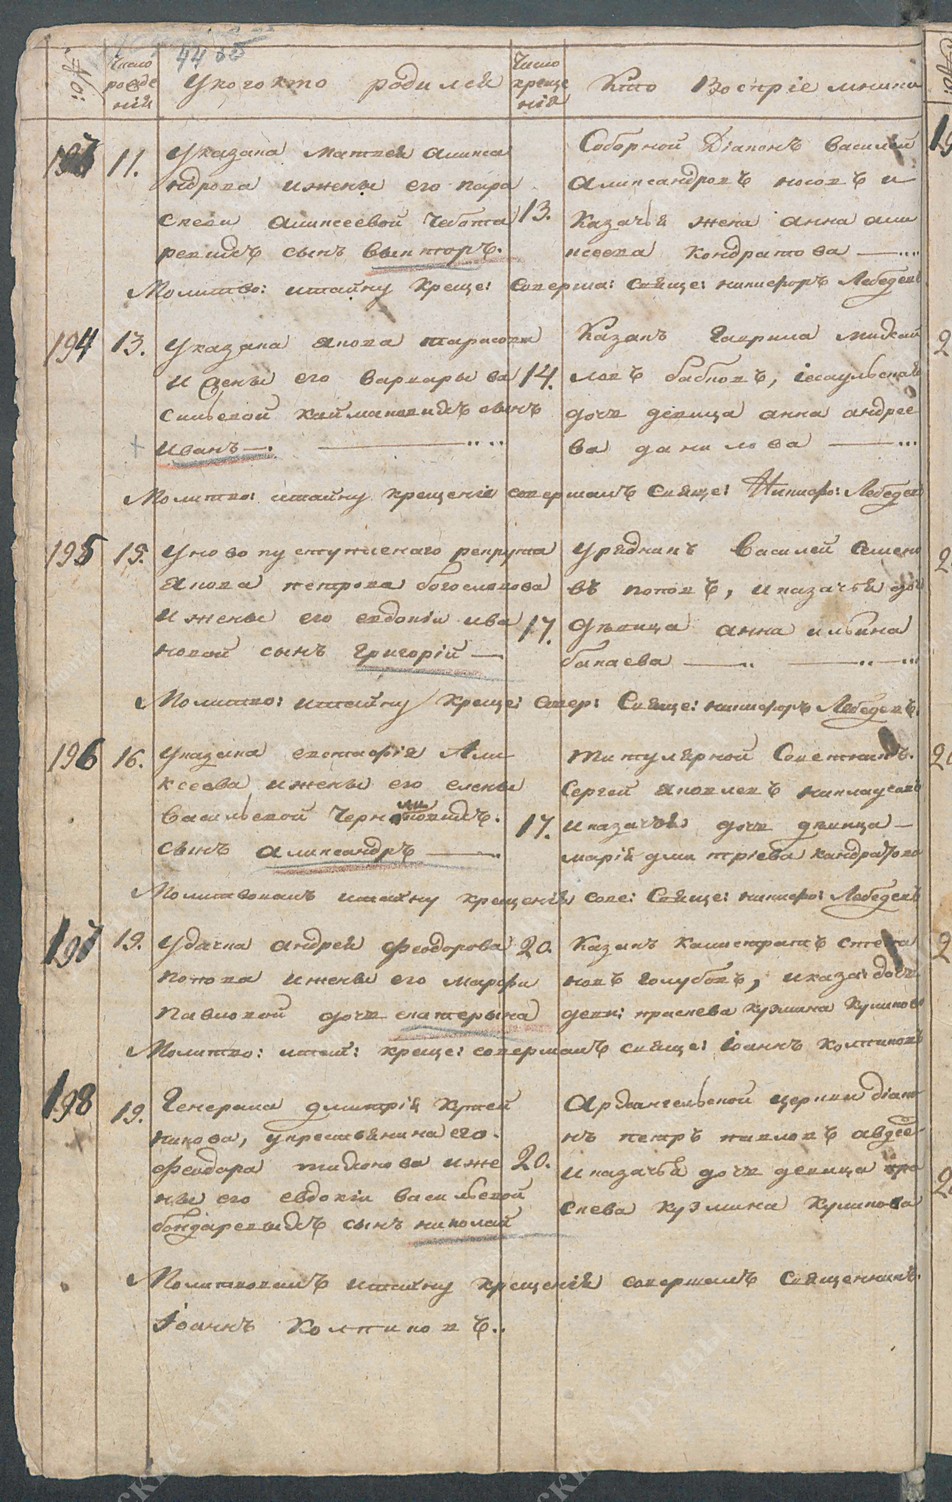 44 об
№:
Число рожде ній
У кого кто родился
Число креще нія
Кто Воспріемники
193
11.
У казака Матвея Алекса
ндрова и жены его пара
скеви алексеевой Чебота
ревыхъ сынъ Викторъ.
13.
Соборной Діаконъ Василій
Александровъ носовъ и
Казачья жена анна але
ксеева кондратова
Молитво: и тайну креще: соверша: Свяще: никифоръ Лебедевъ
194
13.
У казака якова тарасова
и жены его варвары ва
сильевой каймановыхъ сынъ
Иванъ
14.
Казакъ Гаврила михай
ловъ бабковъ, есаульская
дочь девица анна андрее
ва данилова
Молитво: и тайну крещенія совершалъ Свяще: Никифо: Лебедев
195
15.
У новопуступленаго рекрута
якова петрова богословова
и жены его евдокіи ива
новой сынъ Григорій
17.
Урядникъ Василей семено
въ поповъ, и казачья до
Девица анна ильина
бакаева
Молитво: и тайну креще: совер: Свяще: никифоръ Лебедевъ.
196
16.
У казака евстафія Але
ксеева и жены его елены
Васильевой Черн ковыхъ.
сынъ александръ
17.
титулярной Советникъ.
Сергей яковлевъ
и казачья дочь девица
марія дмитріева кандратова
Молитвовалъ и тайну крещенія сове: Свяще: никифо: Лебедевъ
197
19.
У дьячка андрея Феодорова
попова и жены его марфы
Павловой дочь екатерына
20.
Казакъ калистратъ степа
новъ голубовъ, и каза: дочь
деви: праскева кузмина куликова
Молитво: и тай: креще: совершалъ свяще: іоаннъ колпиков
198
19.
Генерала дмитрія Кутей
никова, у крестьянина его
Феодора тихонова и же
ны его евдокіи васильевой
бондаревыхъ сынъ николай
20.
Архангельской церкви діако
нъ петръ павловъ авдее
и казачья дочь девица пра
скева кузмина куликова
Молитвовалъ и тайну крещенія совершалъ Священникъ.
іоаннъ колпиковъ..